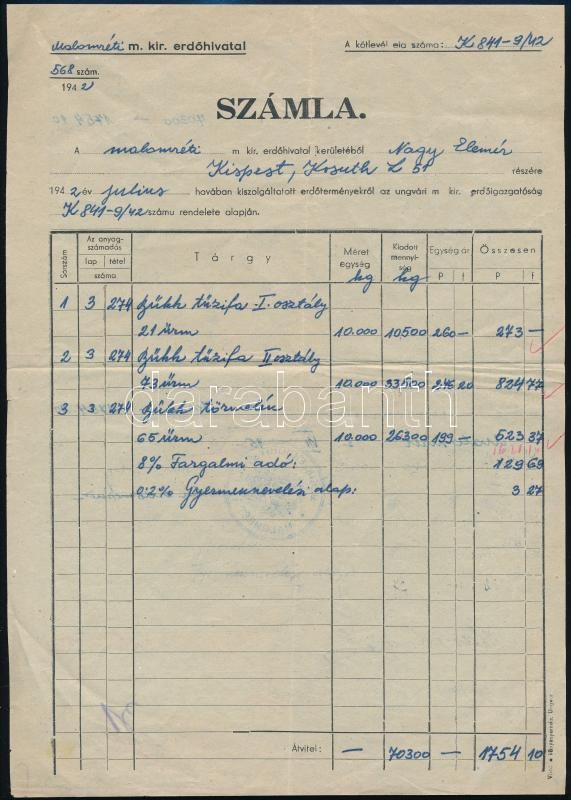 Malomréti m. kir. erdőhivatal
A kötlevél eia száma: K 841-9/42
568 szám.
1942
SZÁMLA.
A malomréti m kir. erdőhivatal kerületéből Nagy Elemér
Kispest, Kosuth L 51 részére
1942 év július havában kiszolgáltatott erdőterményekről az ungvári m kir. erdőigazgatóság
K 841-9/42 számu rendelete alapján.
Sorszám Az anyagszámadás lap tétel száma Tárgy Méret egység kg Kiadott mennyiség kg Egység ár P f Összesen P f
1 3 274 Bükk tűzifa I. osztály
21 ürm 10.000 10500 260 — 273 —
2 3 274 Bükk tűzifa II osztály
73 ürm 10.000 33500 246 20 824 77
3 3 274 Bükk törmelék
65 ürm 10.000 26300 199 — 523 37
8% Forgalmi adó: 129 69
0.2% Gyermeknevelési alap: 3 27
Átvitel: — 70300 — 1754 10
darabanth